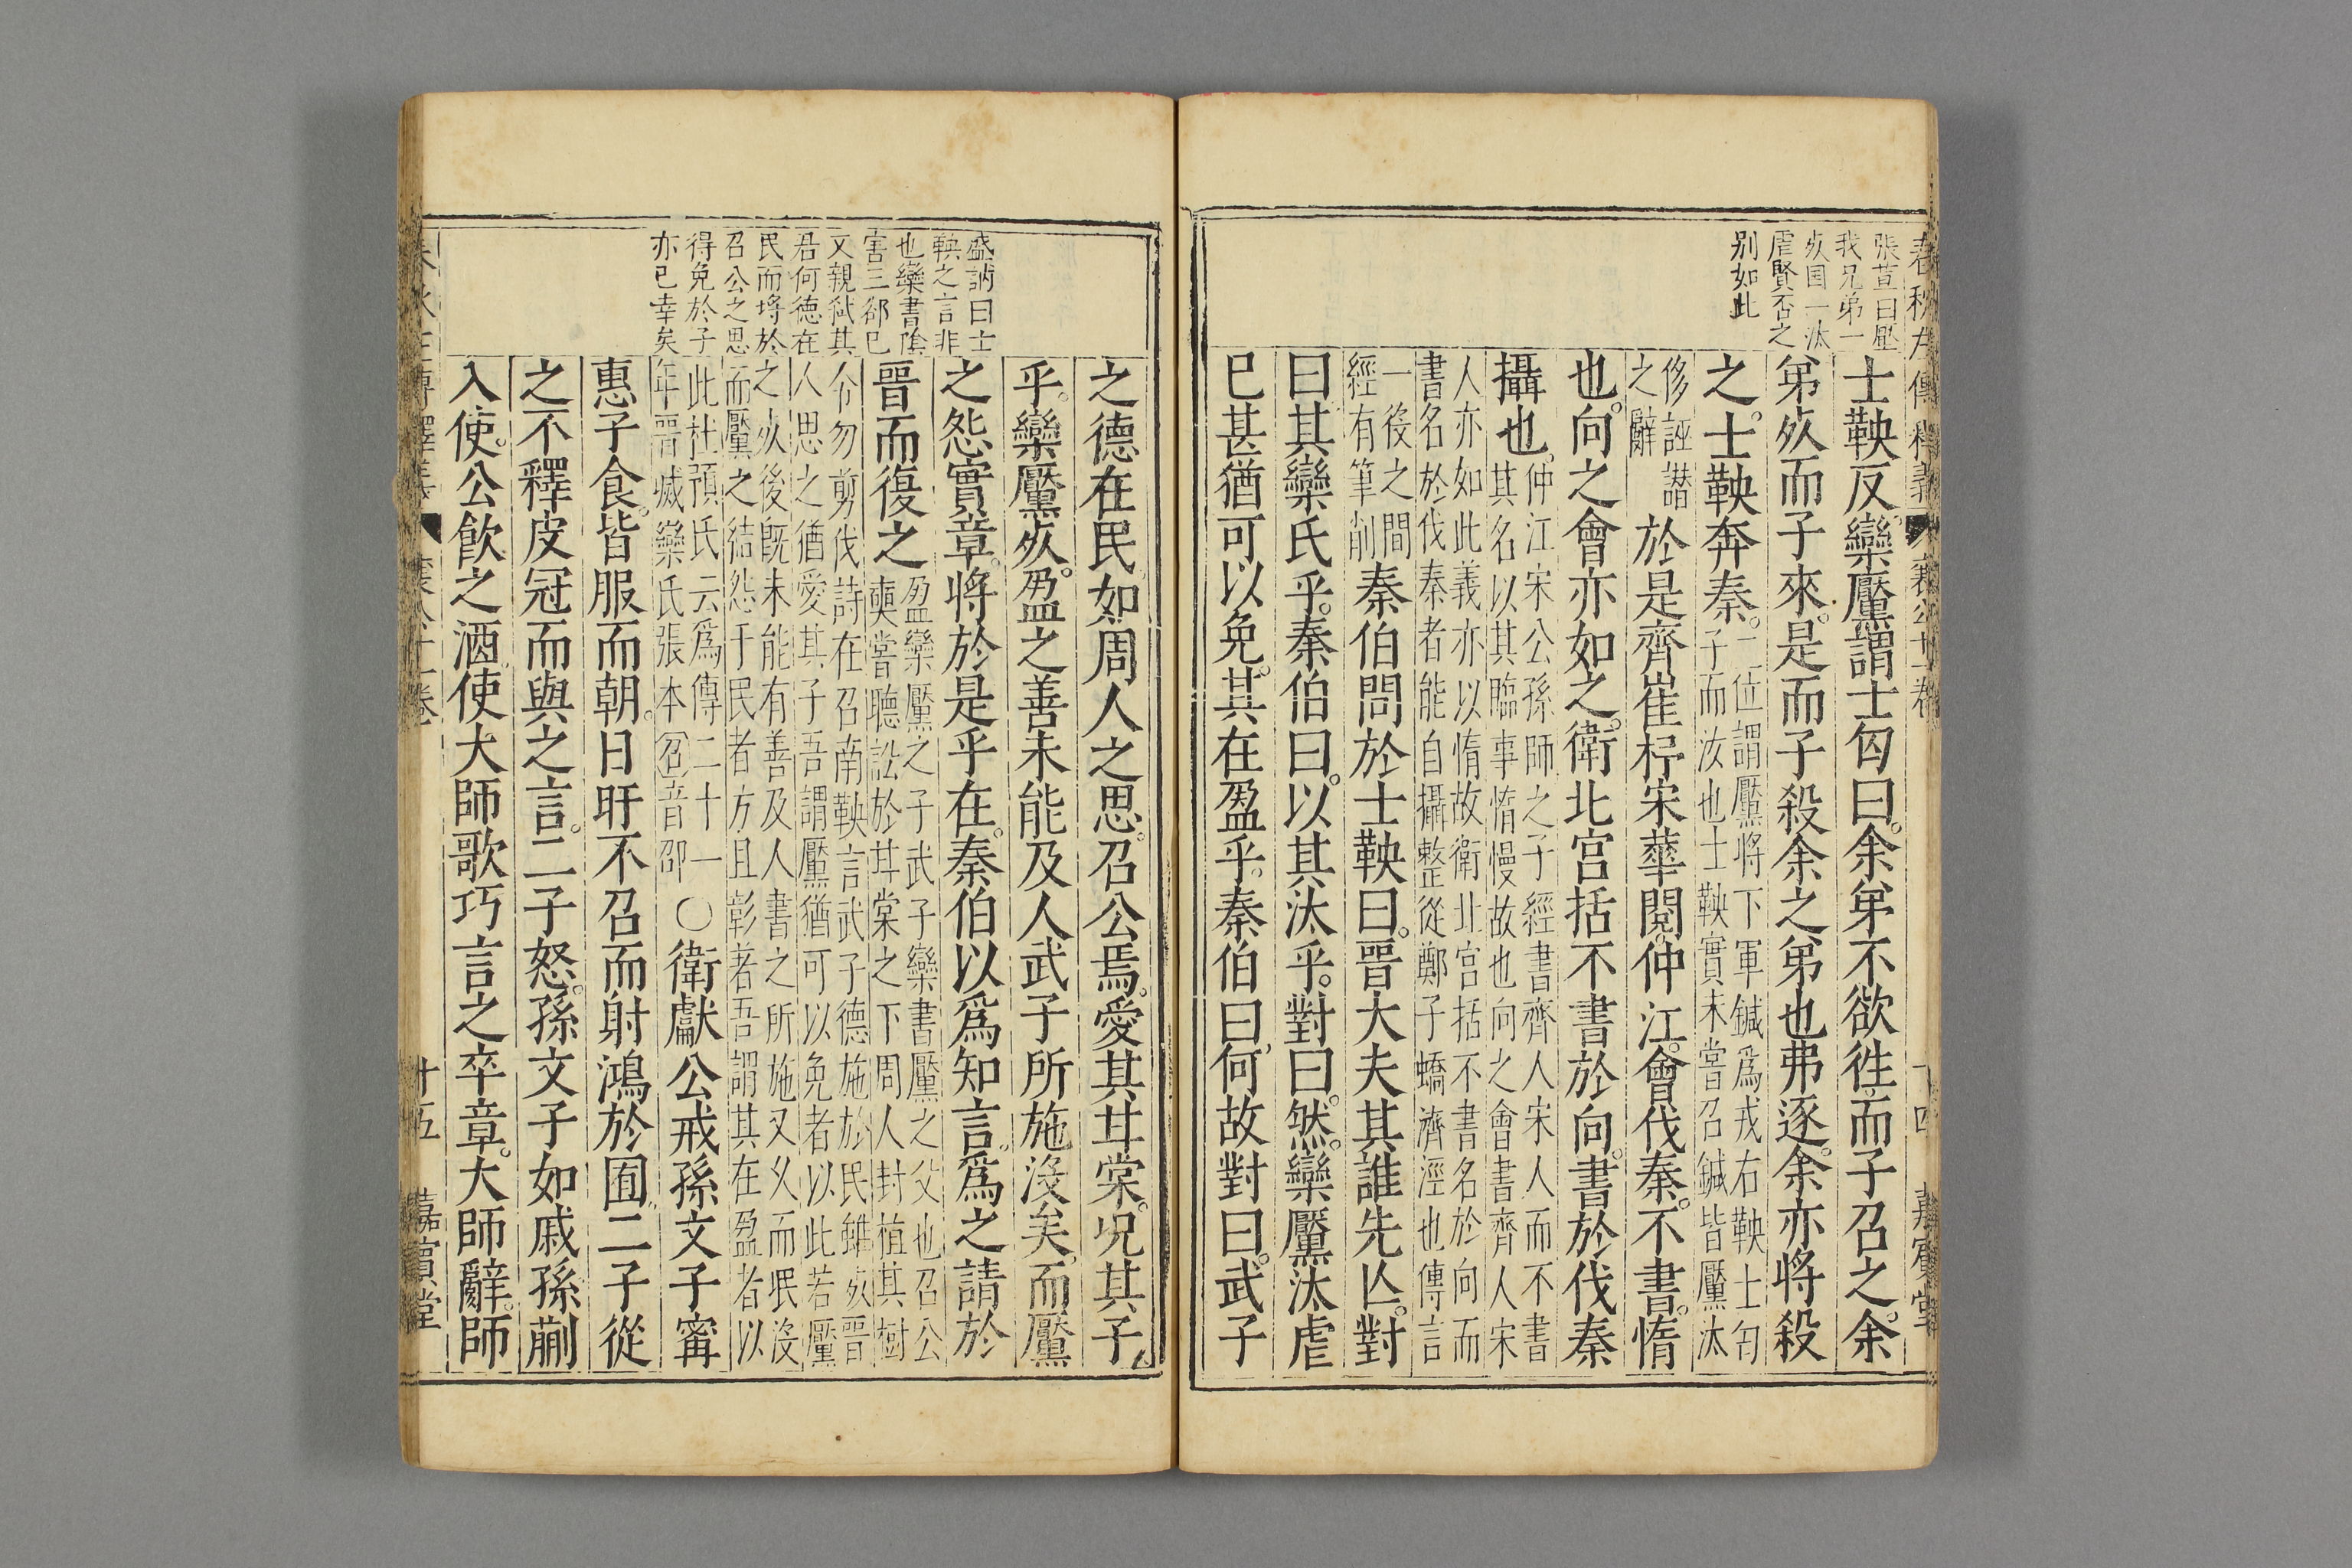 張萱曰壓
我兄弟一
㱙固一汰
虐賢否之
别如此
士鞅反欒黶謂士匄曰余弟不欲徃而子召之余
弟㱙而子來是而子殺余之弟也弗逐余亦將殺
之士鞅奔秦二位謂黶將下軍鍼爲戎右鞅士匄
子而汝也士鞅實未嘗召鍼皆黶汰
侈誣譖
之辭
於是齊崔杼宋華閱仲江會伐秦不書惰
也向之會亦如之衛北宮括不書於向書於伐秦
攝也仲江宋公孫師之子經書齊人宋人而不書
其名以其臨事惰慢故也向之會書齊人宋
人亦如此義亦以惰故衛北宮括不書名於向而
書名於伐秦者能自攝整從鄭子蟜濟涇也傳言
一役之間
經有筆削
秦伯問於士鞅曰晉大夫其誰先亾對
曰其欒氏乎秦伯曰以其汰乎對曰然欒黶汰虐
已甚猶可以免其在盈乎秦伯曰何故對曰武子
盛訥曰士
鞅之言非
也欒書隂
害三郤已
又親弑其
君何德在
民而埓於
召公之思
得免於子
亦已幸矣
之德在民如周人之思召公焉愛其甘棠况其子
乎欒黶㱙盈之善未能及人武子所施沒矣而黶
之怨實章將於是乎在秦伯以爲知言爲之請於
晉而復之盈欒黶之子武子欒書黶之父也召公
奭嘗聽訟於甘棠之下周人封植其樹
令勿剪伐詩在召南鞅言武子德施於民雖㱙晉
人思之猶愛其子吾謂黶猶可以免者以此若黶
之㱙後旣未能有善及人書之所施又乆而泯沒
而黶之結怨于民者方且彰著吾謂其在盈者以
此杜預氏云爲傳二十一
年晉滅欒氏張本召音卲
○衛獻公戒孫文子甯
惠子食皆服而朝日旰不召而射鴻於囿二子從
之不釋皮冠而與之言二子怒孫文子如戚孫蒯
入使公飲之酒使大師歌巧言之卒章大師辭師
十五 嘉賓堂